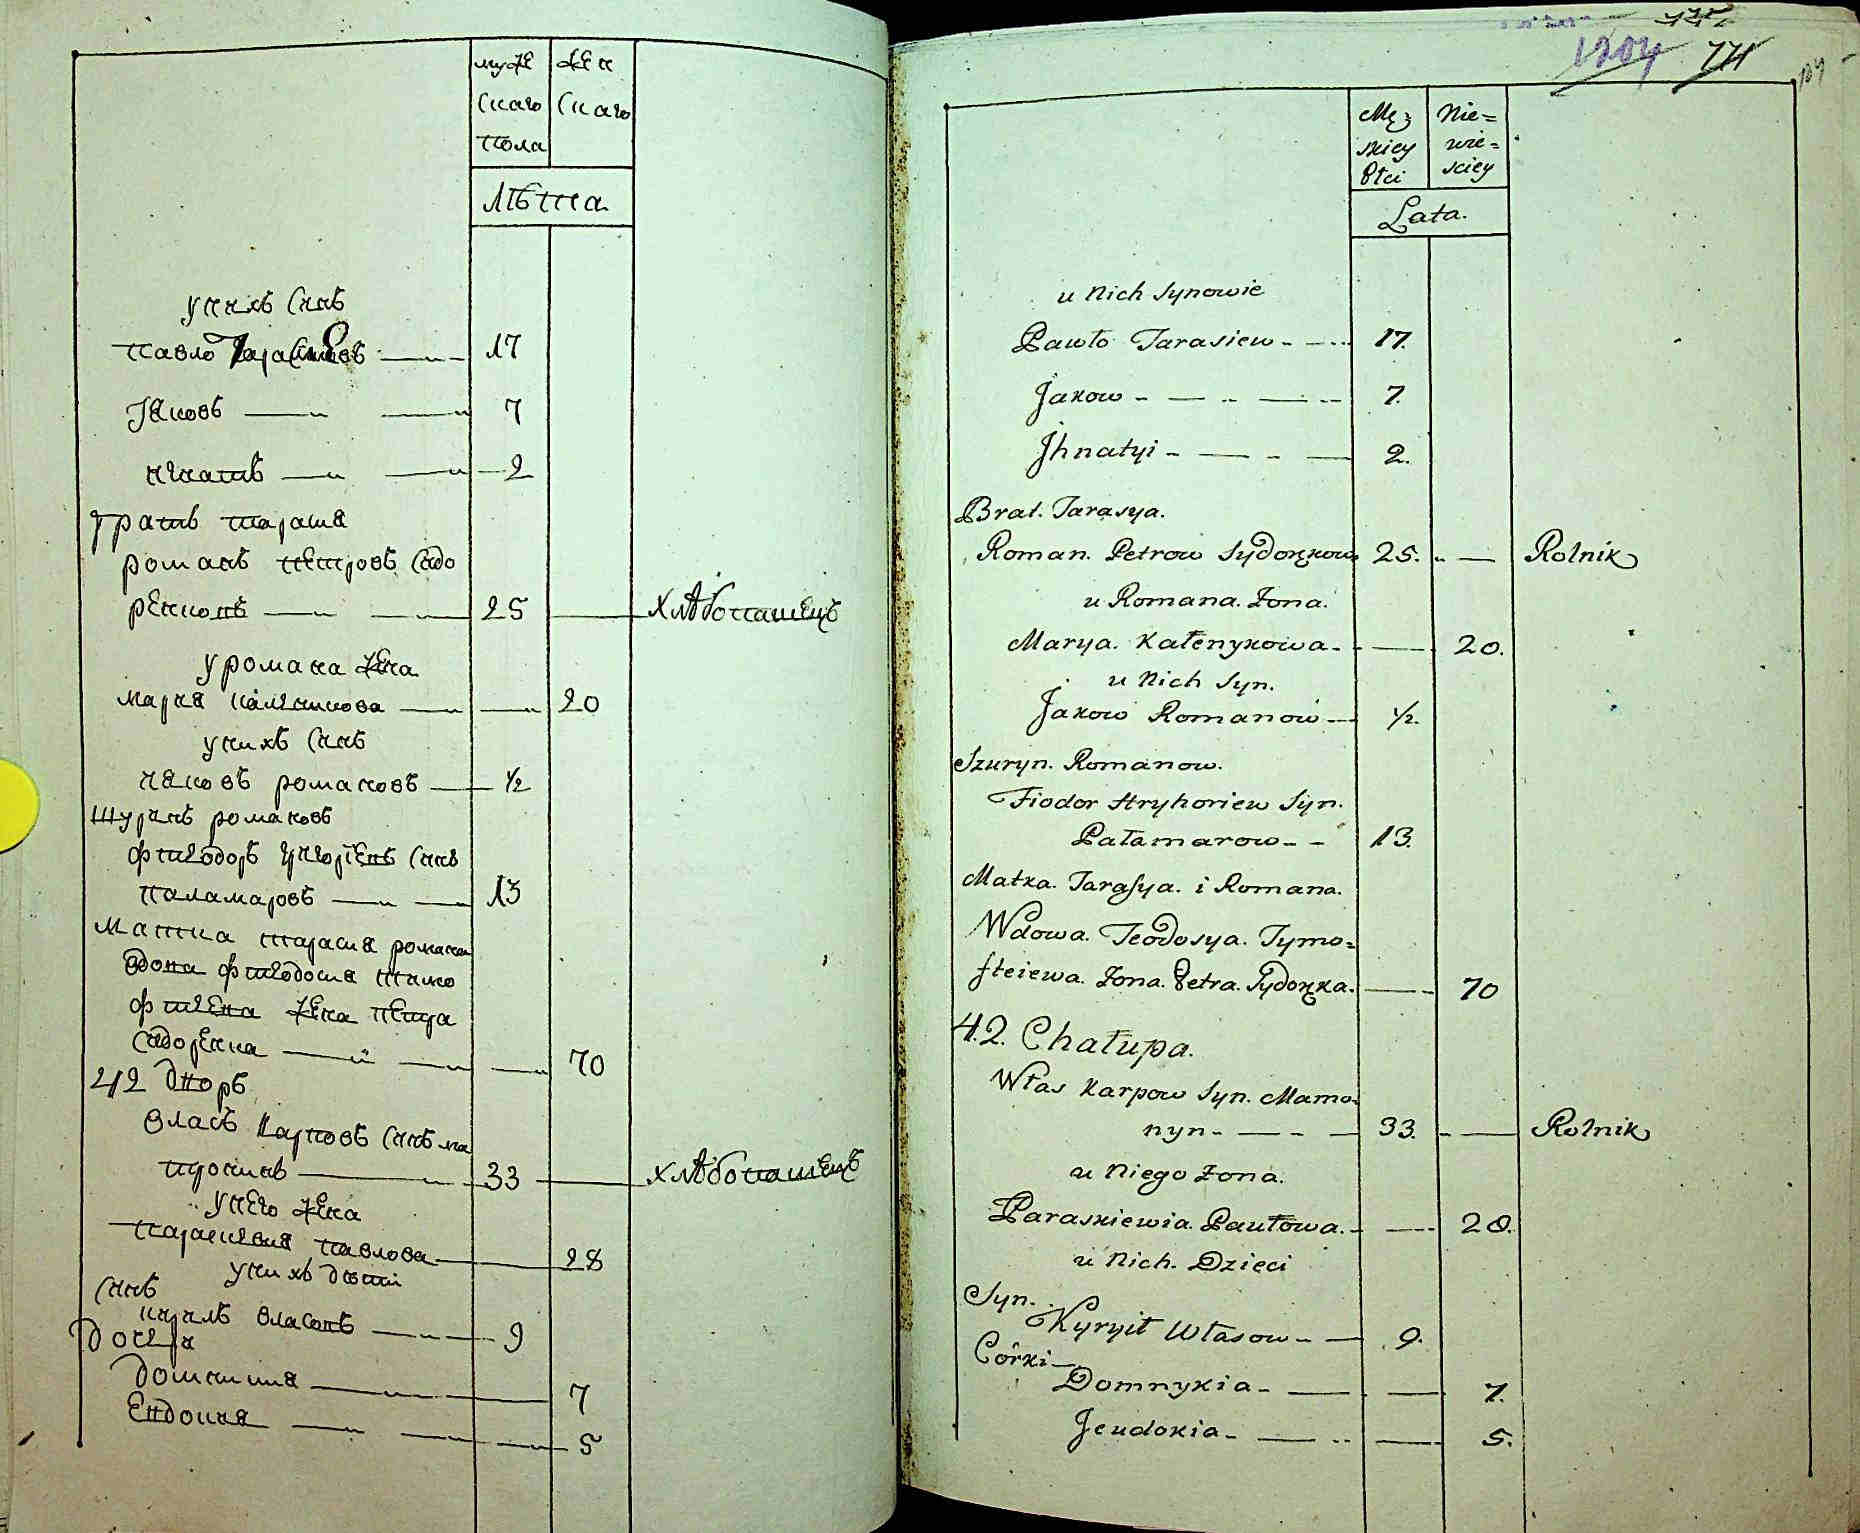 муже
ского
пола
жен
ского
лѣта
у нихъ синъ
павло Тарасиевъ 17
Яковъ 7
игнатъ 2
братъ тарасия
романъ петровъ сидо
ренковъ 25 хлѣбопашецъ
у романа жена
мария каленикова 20
у нихъ синъ
иаковъ романовъ 1/2
шуринъ романовъ
фиодоръ григориевъ синъ
паламаровъ 13
матка тарасия романа
вдова фиодосия тимо
фиева жена петра
сидоренка 70
42 дворъ
власъ карповъ синъ ма
33 хлѣбопашецъ
у него жена
параскевия павлова 28
у нихъ дѣти
синъ
кирилъ власовъ 9
дочери
домникия 7
Евдокия 5
1204 771
104
Męz
skiey
Płci
Nie=
wie=
sciey
Lata.
u Nich Synowie
Pawło Tarasiew - 17.
Jakow - 7.
Jhnatyi - 2.
Brat. Tarasya.
Roman. Petrow Sydorkow 25. Rolnik
u Romana. Zona.
Marya. Kałenykowa - 20.
u Nich Syn.
Jakow Romanow 1/2.
Szuryn. Romanow.
Fiodor Hryhoriew Syn.
Pałamarow - - 13.
Matka. Tarasya. i Romana.
Wdowa. Teodosya. Tymo=
fteiewa. Zona. Petra. Sydorka. 70
42. Chałupa.
Włas Karpow Syn. Mamo=
nyn - 33. Rolnik
u Niego Zona.
Paraskiewia. Pawłowa. - 28.
u Nich. Dzieci
Syn.
Kyryił Własow - 9.
Córki
Domnykia - 7.
Jeudokia - 5.